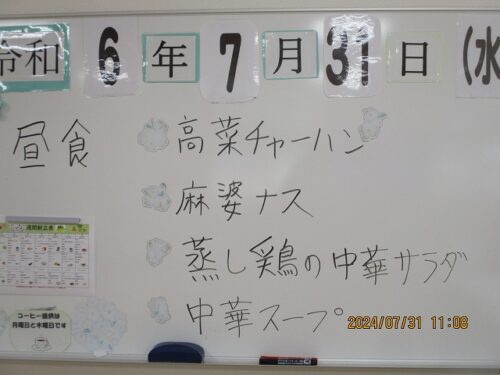 令和 6 年 7 月 31 日 (水
昼食
高菜チャーハン
麻婆ナス
蒸し鶏の中華サラダ
中華スープ
週間献立表
コーヒー提供は
月曜日と木曜日です
2024/07/31 11:08